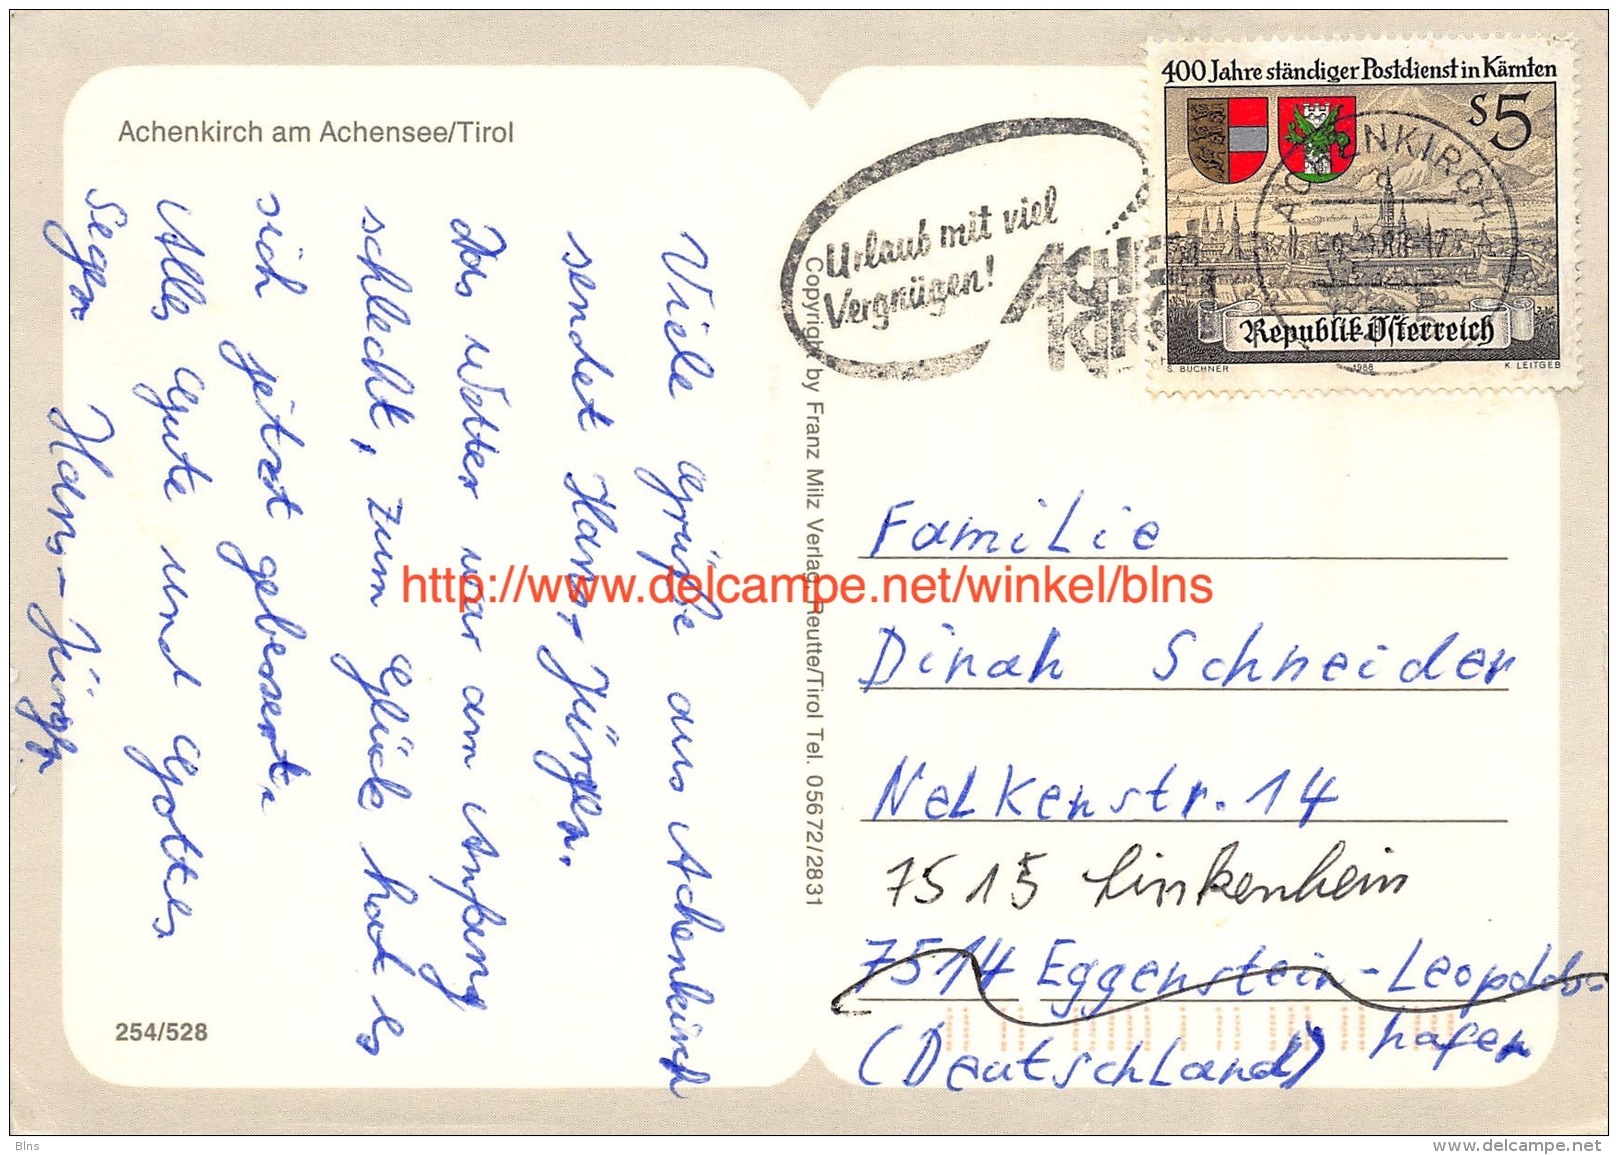 Achenkirch am Achensee/Tirol
Viele Grüße aus Achenkirch
sendet Hans-Jürgen.
Das Wetter war am Anfang
schlecht, zum Glück hat es
sich jetzt gebessert.
Alles Gute und Gottes
Segen
Hans-Jürgen
254/528
Copyright by Franz Milz Verlag, Reutte/Tirol Tel. 05672/2831
Urlaub mit viel
Vergnügen!
ACHE
KIRC
400 Jahre ständiger Postdienst in Kärnten
S5
ACHENKIRCH
Republik Österreich
S. BUCHNER 1988 K. LEITGEB
Familie
Dinah Schneider
Nelkenstr. 14
7515 Linkenheim
7514 Eggenstein-Leopolds-
hafen
(Deutschland)
http://www.delcampe.net/winkel/blns
Blns
www.delcampe.net